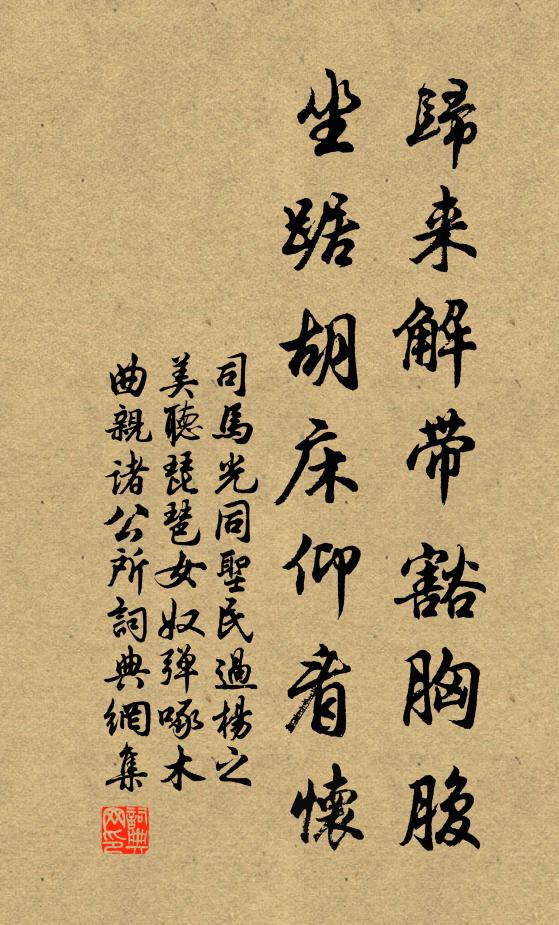 歸来解带豁胸腹
坐踞胡床仰看懷
司馬光同聖民過楊之
美聽琵琶女奴弹啄木
曲親诸公所詞典網集
詞典网印